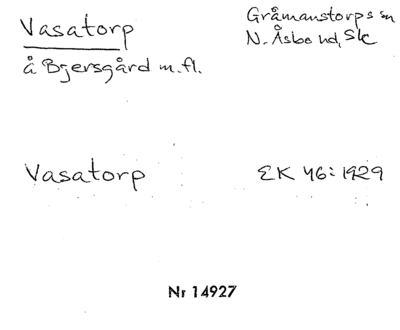 Vasatorp
å Bjersgård m.fl.
Gråmanstorps sn
N. Åsbo hd, Sk
Vasatorp
EK 46:1929
Nr 14927